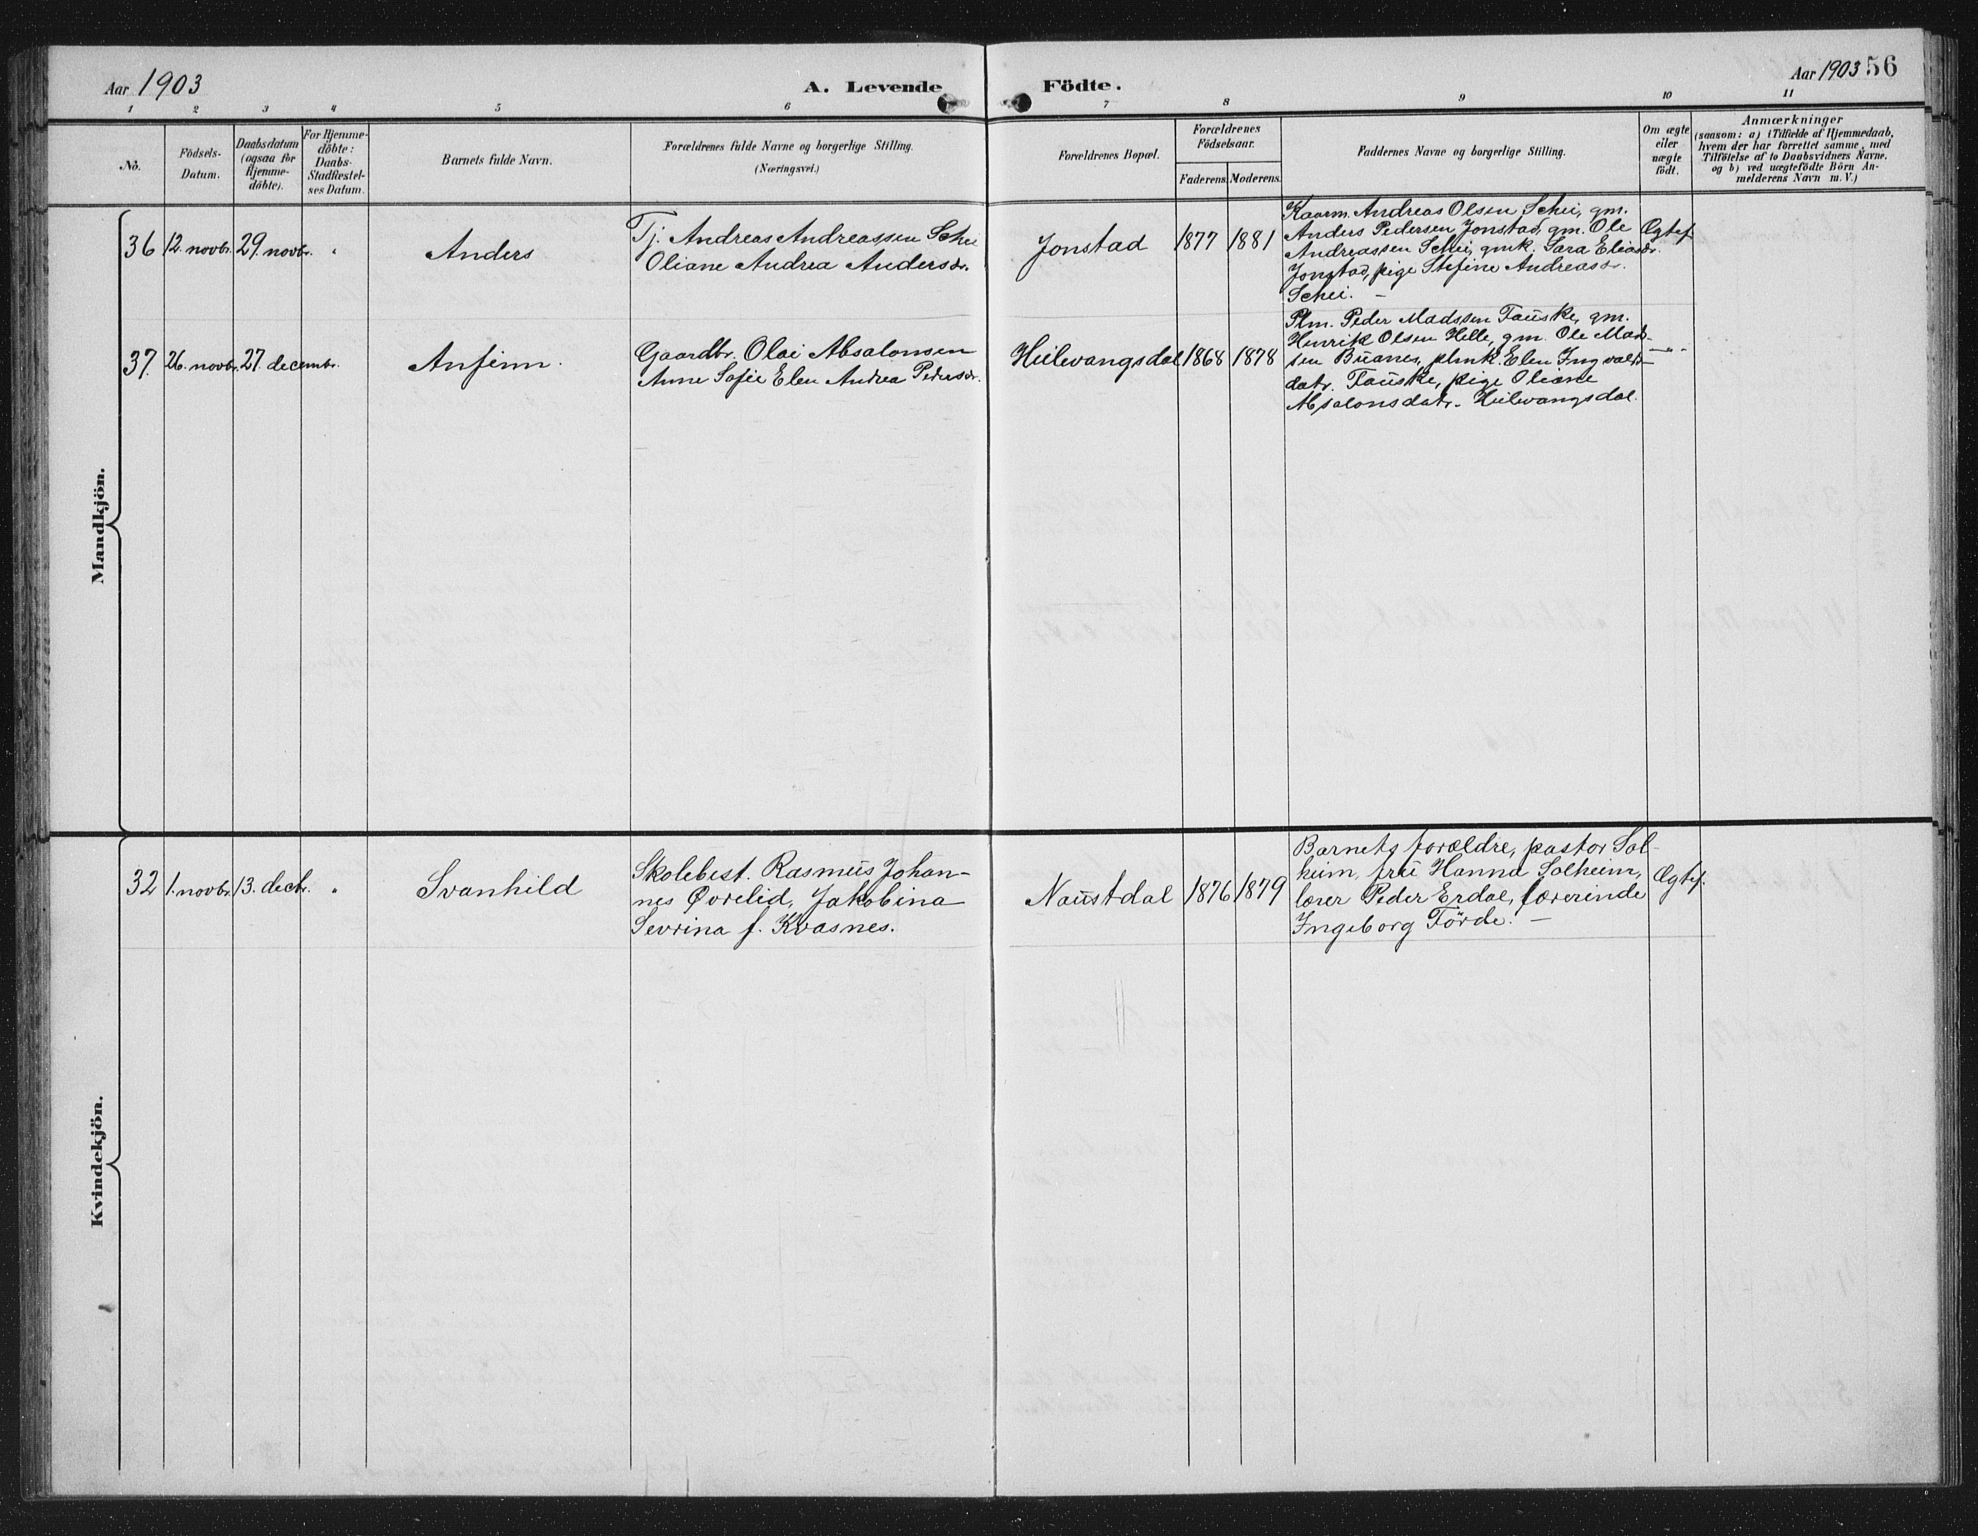 Aar 1903
A. Levende
Födte.
Aar 1903 56
1 2 3 4 5 6 7 8 9 10 11
No.
Födsels-
Datum.
Daabsdatum
(ogsaa for
Hjemme-
döbte).
For Hjemme-
döbte:
Daabs-
Stadfæstel-
ses Datum.
Barnets fulde Navn.
Forældrenes fulde Navne og borgerlige Stilling.
(Næringsvei.)
Forældrenes Bopæl.
Forældrenes
Födselsaar.
Faderens. Moderens.
Faddernes Navne og borgerlige Stilling.
Om ægte
eller
uægte
födt.
Anmærkninger
(saasom: a) i Tilfælde af Hjemmedaab,
hvem der har forrettet samme, med
Tilföielse af to Daabsvidners Navne,
og b) ved uægtefödte Börn An-
melderens Navn m. V.)
Mandkjön.
36 12. novbr. 29. novbr. "
Anders
Tj. Andreas Andreassen Schei
Oliane Andrea Andersdr.
Jonstad 1877 1881
Kaarm. Andreas Olsen Schei, gm.
Anders Pedersen Jonstad, gm. Ole
Andreassen Schei, gmk. Sara Eliasdr.
Jonstad, pige Stefine Andreasdr.
Schei. —
Ægtef.
37. 26. novbr. 27. decembr.
Anfinn.
Gaardbr. Olai Absalonsen
Anne Sofie Elen Andrea Pedersdr.
Heilevangsdal 1868 1878
Plm. Peder Madssen Fauske, gm.
Henrik Olsen Helle, gm. Ole Mad-
sen Buanes, plmk. Elen Ingvalds-
datr. Fauske, pige Oliane
Absalonsdatr. Heilevangsdal.
—"—
Kvindekjön.
32 1. novbr. 13. decbr. "
Svanhild
Skolebest. Rasmus Johan-
nes Øvrelid, Jakobina
Sevrina f. Kvasnes.
Naustdal 1876 1879
Barnets forældre, pastor Sol-
heim, fru Hanna Solheim,
lærer Peder Erdal, lærerinde
Ingeborg Förde. —
Ægtef.